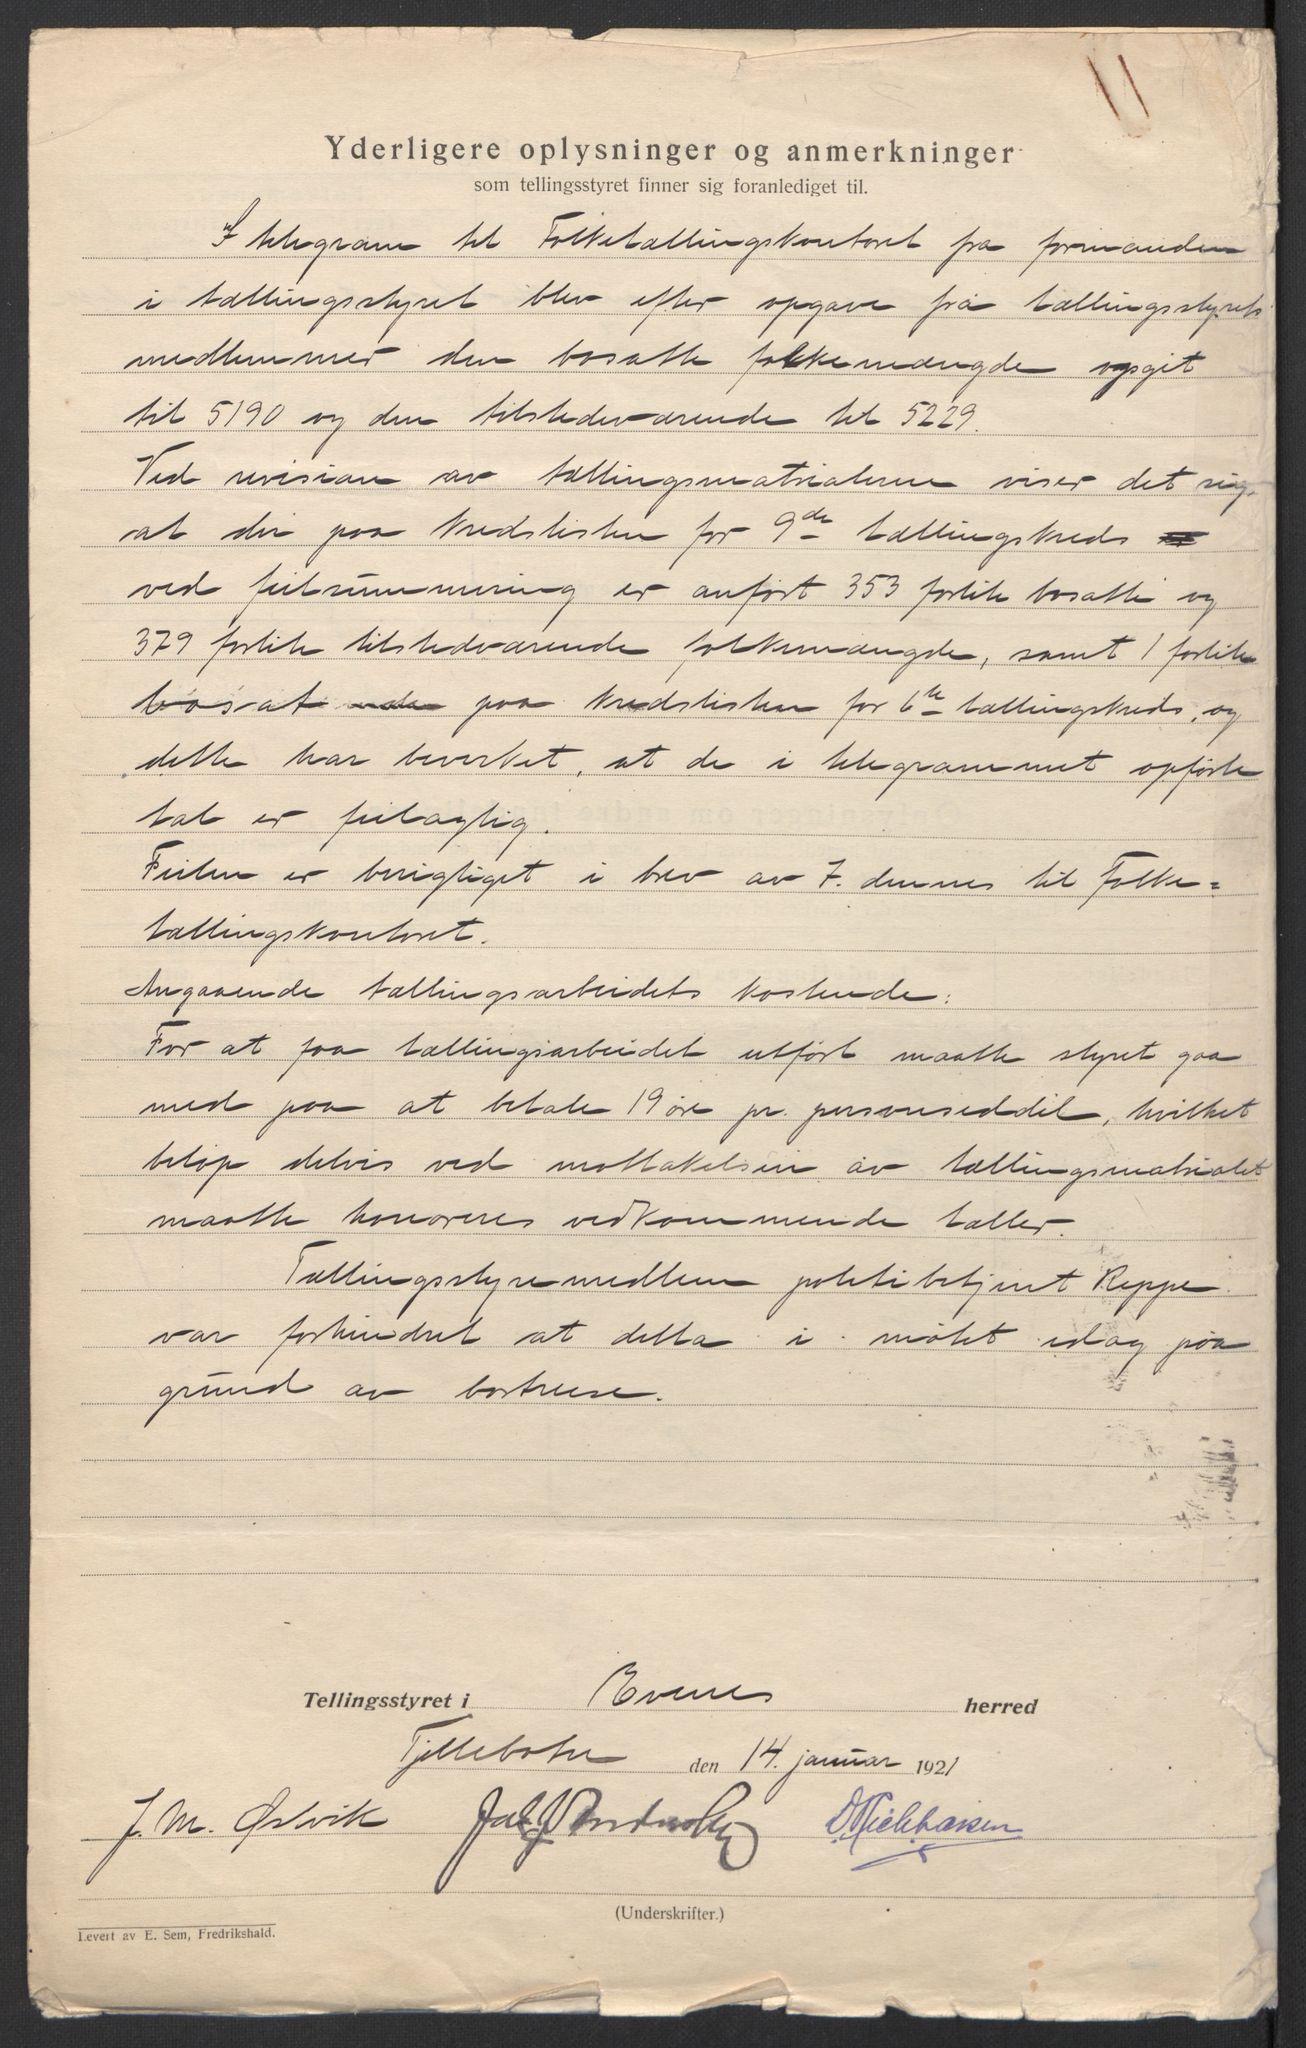 Yderligere oplysninger og anmerkninger
som tellingsstyret finner sig foranlediget til.
I telegram til Folketællingskontoret fra formanden
i tællingsstyret blev efter opgave fra tællingsstyrets
medlemmer den bosatte folkemængde opgit
til 5190 og den tilstedeværende til 5229.
Ved revision av tællingsmatrialerne viser det sig
at der paa kredslisten for 9de tællingskreds
ved feilsummering er anført 353 forlite bosatte og
379 forlite tilstedværende folkemængde, samt 1 forlite
bosat paa kredslisten for 6te tællingskreds, og
dette har bevirket, at de i telegrammet opførte
tal er feilagtig.
Feilen er berigtiget i brev av 7. dennes til Folke=
tællingskontoret.
Angaaende tællingsarbeidets kostende:
For at faa tællingsarbeidet utført maatte styret gaa
med paa at betale 19 øre pr. personseddel, hvilket
beløp delvis ved mottakelsen av tællingsmatrialet
maatte honoreres vedkommende tæller.
Tællingsstyremedlem politibetjent Reppe
var forhindret at delta i møtet idag paa
grund av bortreise.
Tellingsstyret i Evenes herred
den 14. januar 1921
J. M. Østvik
(Underskrifter.)
Levert av E. Sem, Fredrikshald.